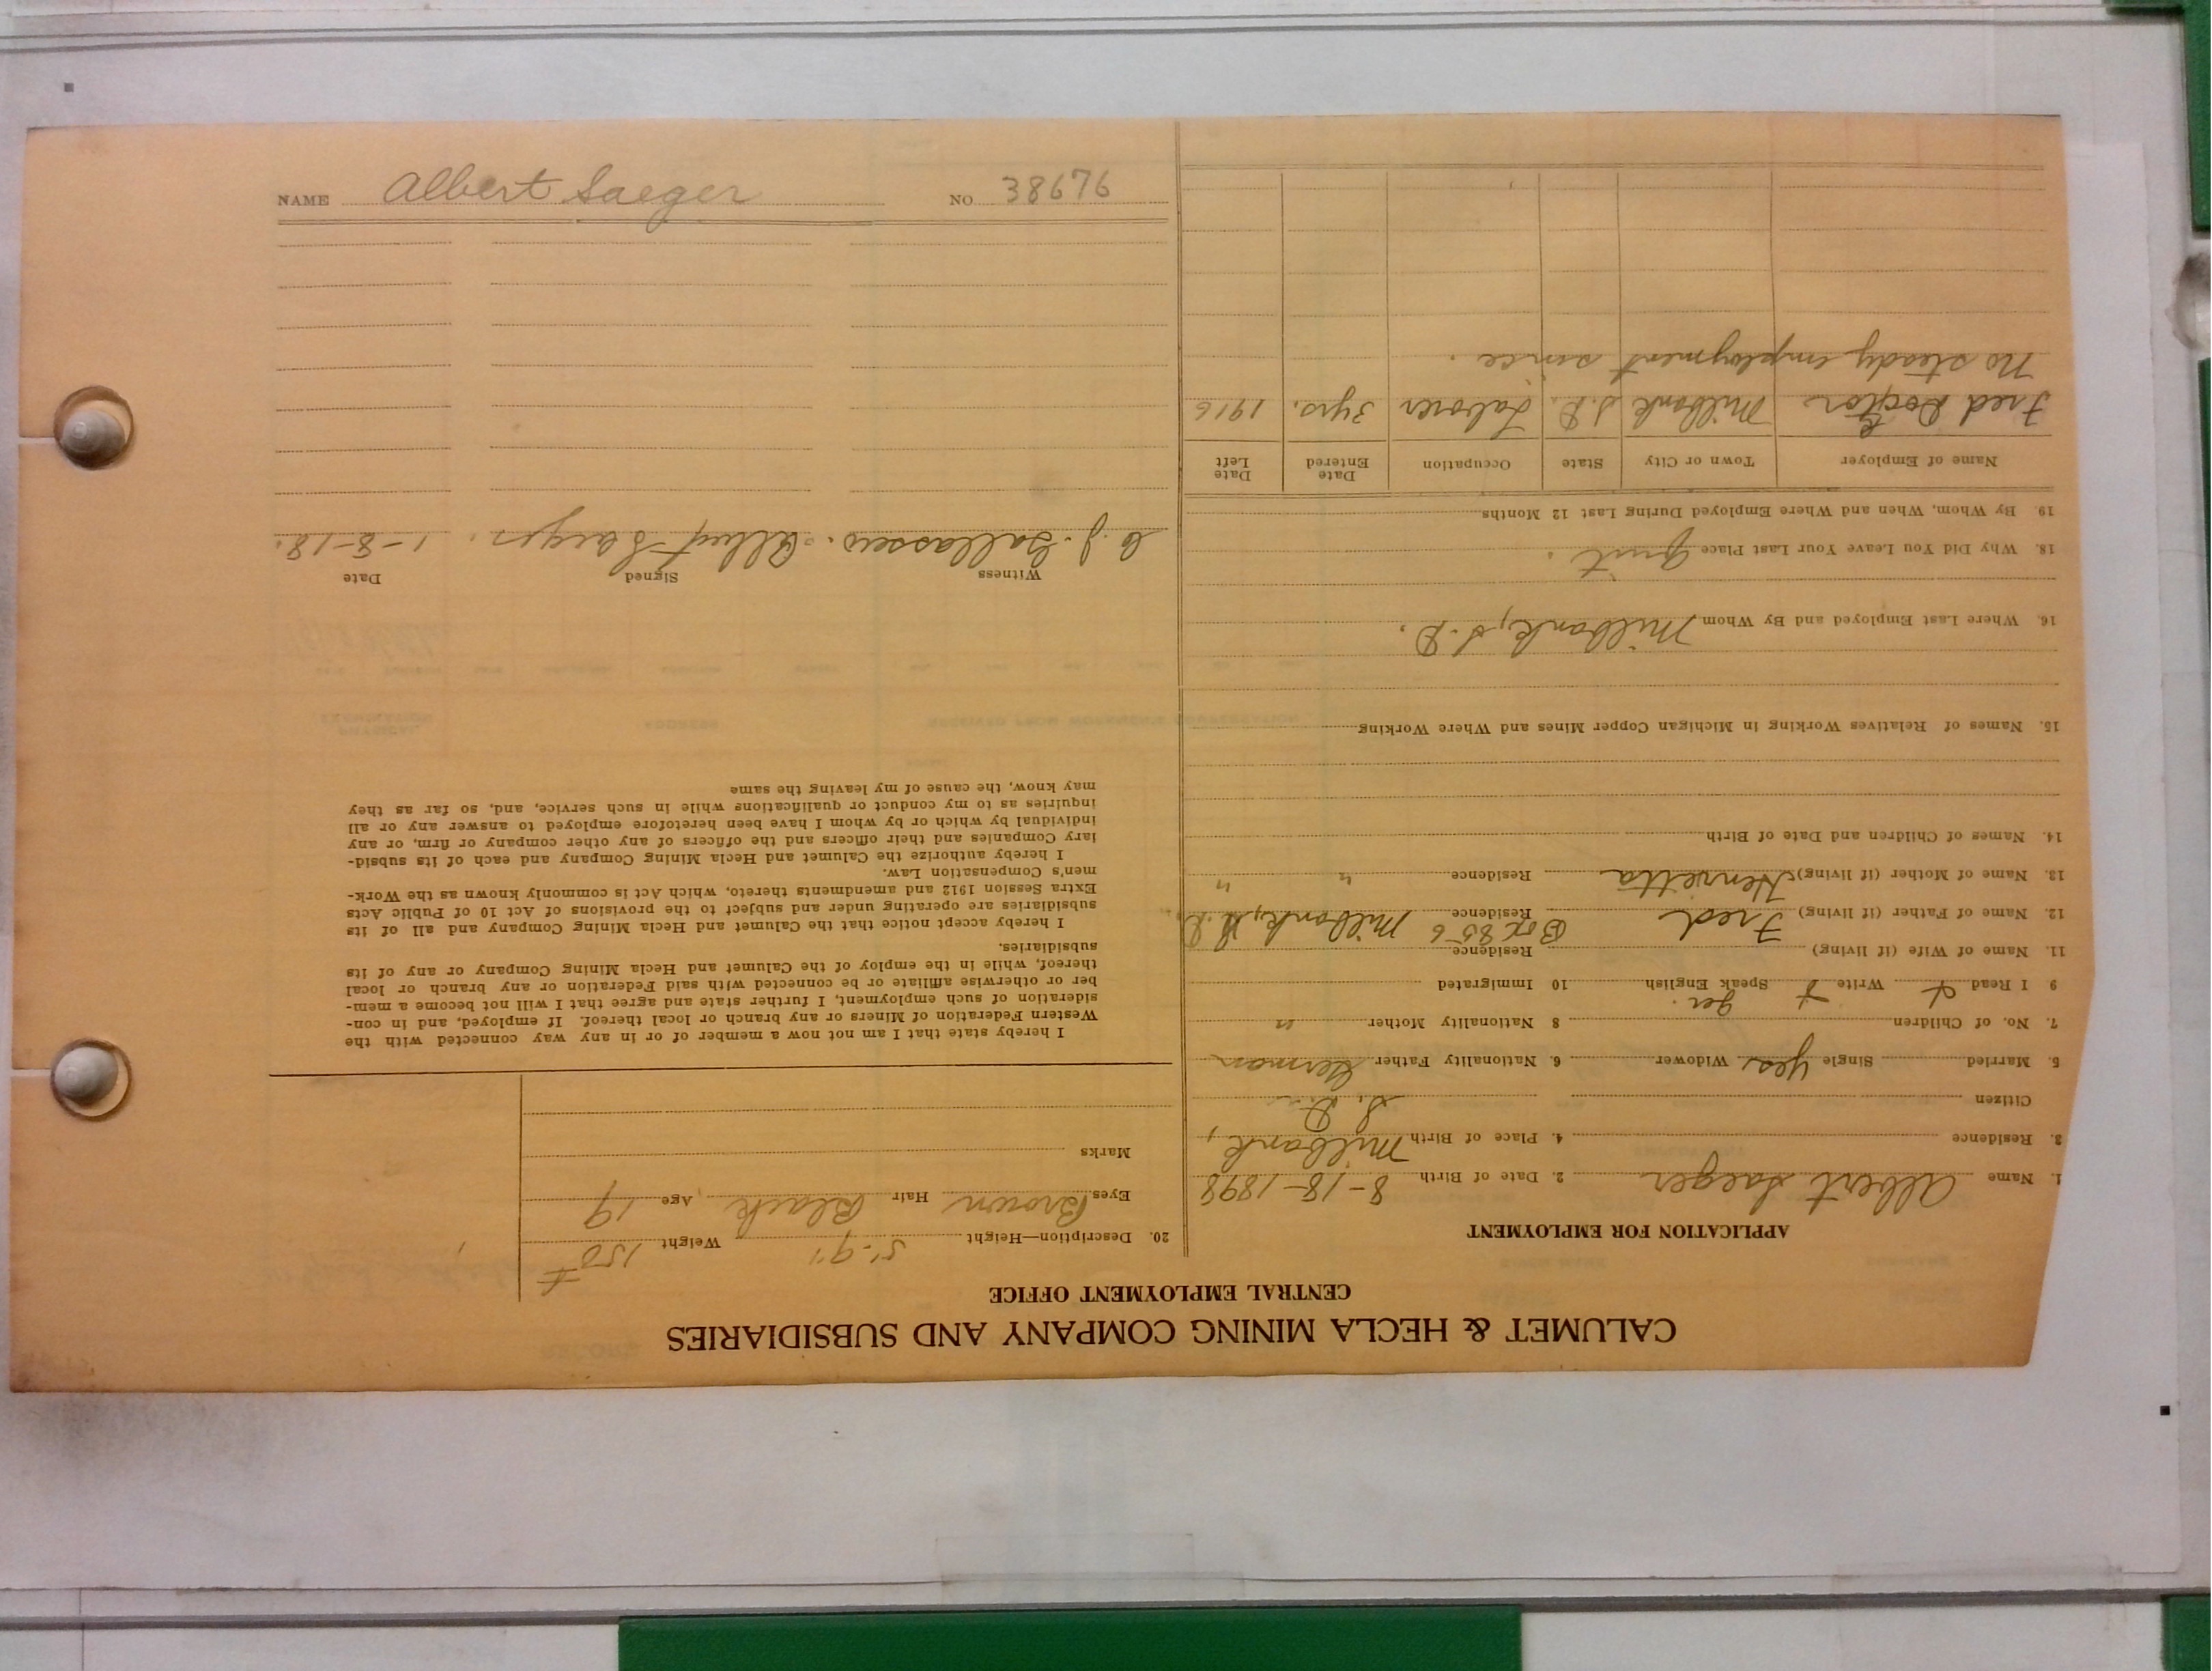 CALUMET & HECLA MINING COMPANY AND SUBSIDIARIES
CENTRAL EMPLOYMENT OFFICE
APPLICATION FOR EMPLOYMENT
1. Name Albert Saeger 2. Date of Birth 8-18-1898
3. Residence 4. Place of Birth Milbank,
Citizen S. D.
5. Married Single yes Widower 6. Nationality Father German
7. No. of Children 8 Nationality Mother "
9 I Read + Write + Speak English ger. 10 Immigrated
11. Name of Wife (if living) Residence
12. Name of Father (if living) Fred Residence Box 856 Milbank, S. D.
13. Name of Mother (if living) Henrietta Residence " "
14. Names of Children and Date of Birth
15. Names of Relatives Working in Michigan Copper Mines and Where Working
16. Where Last Employed and By Whom Milbank, S. D.
18. Why Did You Leave Your Last Place quit.
19. By Whom, When and Where Employed During Last 12 Months
Name of Employer Town or City State Occupation Date Entered Date Left
Fred Milbank S. D. Laborer 3 yrs. 1916
No steady employment since.
20. Description—Height 5'-9" Weight 150 #
Eyes Brown Hair Black, Age 19
Marks
I hereby state that I am not now a member of or in any way connected with the
Western Federation of Miners or any branch or local thereof. If employed, and in con-
sideration of such employment, I further state and agree that I will not become a mem-
ber or otherwise affiliate or be connected with said Federation or any branch or local
thereof, while in the employ of the Calumet and Hecla Mining Company or any of its
subsidiaries.
I hereby accept notice that the Calumet and Hecla Mining Company and all of its
subsidiaries are operating under and subject to the provisions of Act 10 of Public Acts
Extra Session 1912 and amendments thereto, which Act is commonly known as the Work-
men's Compensation Law.
I hereby authorize the Calumet and Hecla Mining Company and each of its subsid-
iary Companies and their officers and the officers of any other company or firm, or any
individual by which or by whom I have been heretofore employed to answer any or all
inquiries as to my conduct or qualifications while in such service, and, so far as they
may know, the cause of my leaving the same
Witness Signed Date
C. J. Albert Saeger. 1-8-18.
NAME Albert Saeger NO. 38676